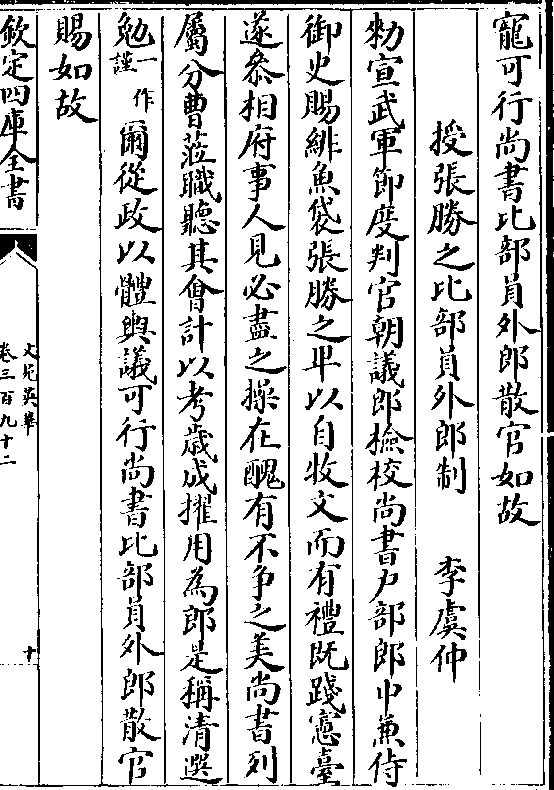 寵可行尚書比部員外郎散官如故
授張勝之比部員外郎制 李虞仲
勑宣武軍節度判官朝議郎檢校尚書戶部郎中兼侍
御史賜緋魚袋張勝之卑以自牧文而有禮既踐憲臺
遂叅相府事人見必盡之操在醜有不争之美尚書列
屬分曹蒞職聽其會計以考歲成擢用為郎是稱清選
勉一作謹爾從政以體輿議可行尚書比部員外郎散官
賜如故
欽定四庫全書
文苑英華
卷三百九十二
十